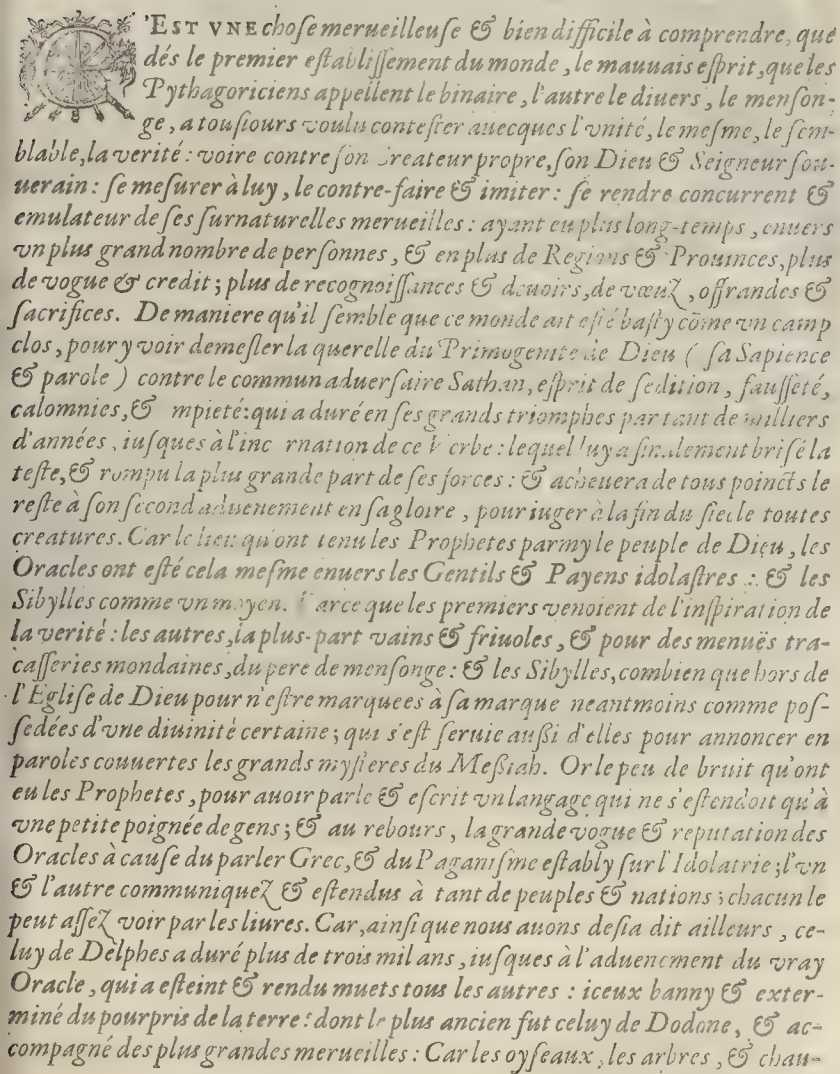 'EST VNE chose merueilleuse & bien difficile à comprendre, que
dés le premier establissement du monde, le mauuais esprit, que les
Pythagoriciens appellent le binaire, l'autre le diuers, le menson-
ge, a tousiours voulu contester auecques l'vnité, le mesme, le sem-
blable, la verité: voire contre son Createur propre, son Dieu & Seigneur sou-
uerain: se mesurer à luy, le contre-faire & imiter: se rendre concurrent &
emulateur de ses surnaturelles merueilles: ayant eu plus long-temps, enuers
vn plus grand nombre de personnes, & en plus de Regions & Prouinces, plus
de vogue & credit; plus de recognoissances & deuoirs, de vœuz, offrandes &
sacrifices. De maniere qu'il semble que ce monde ait esté basty cōme vn camp
clos, pour y voir demesler la querelle du Primogenite de Dieu ( sa Sapience
& parole ) contre le commun aduersaire Sathan, esprit de sedition, fausseté,
calomnies, & mpieté: qui a duré en ses grands triomphes par tant de milliers
d'années, iusques à l'inc rnation de ce Verbe: lequel luy a finalement brisé la
teste, & rompu la plus grande part de ses forces: & acheuera de tous poincts le
reste à son second aduenement en sa gloire, pour iuger à la fin du siecle toutes
creatures. Car le lieu qu'ont tenu les Prophetes parmy le peuple de Dieu, les
Oracles ont esté cela mesme enuers les Gentils & Payens idolastres: & les
Sibylles comme vn moyen. Parce que les premiers venoient de l'inspiration de
la verité: les autres, la plus-part vains & friuoles, & pour des menuës tra-
casseries mondaines, du pere de mensonge: & les Sibylles, combien que hors de
l'Eglise de Dieu pour n'estre marquees à sa marque neantmoins comme pos-
sedées d'vne diuinité certaine; qui s'est seruie außi d'elles pour annoncer en
paroles couuertes les grands mysteres du Meßiah. Or le peu de bruit qu'ont
eu les Prophetes, pour auoir parlé & escrit vn langage qui ne s'estendoit qu'à
vne petite poignée de gens; & au rebours, la grande vogue & reputation des
Oracles à cause du parler Grec, & du Paganisme estably sur l'Idolatrie; l'vn
& l'autre communiquez & estendus à tant de peuples & nations; chacun le
peut assez voir par les liures. Car, ainsi que nous auons desia dit ailleurs, ce-
luy de Delphes a duré plus de trois mil ans, iusques à l'aduenement du vray
Oracle, qui a esteint & rendu muets tous les autres: iceux banny & exter-
miné du pourpris de la terre: dont le plus ancien fut celuy de Dodone, & ac-
compagné des plus grandes merueilles: Car les oyseaux, les arbres, & chau-